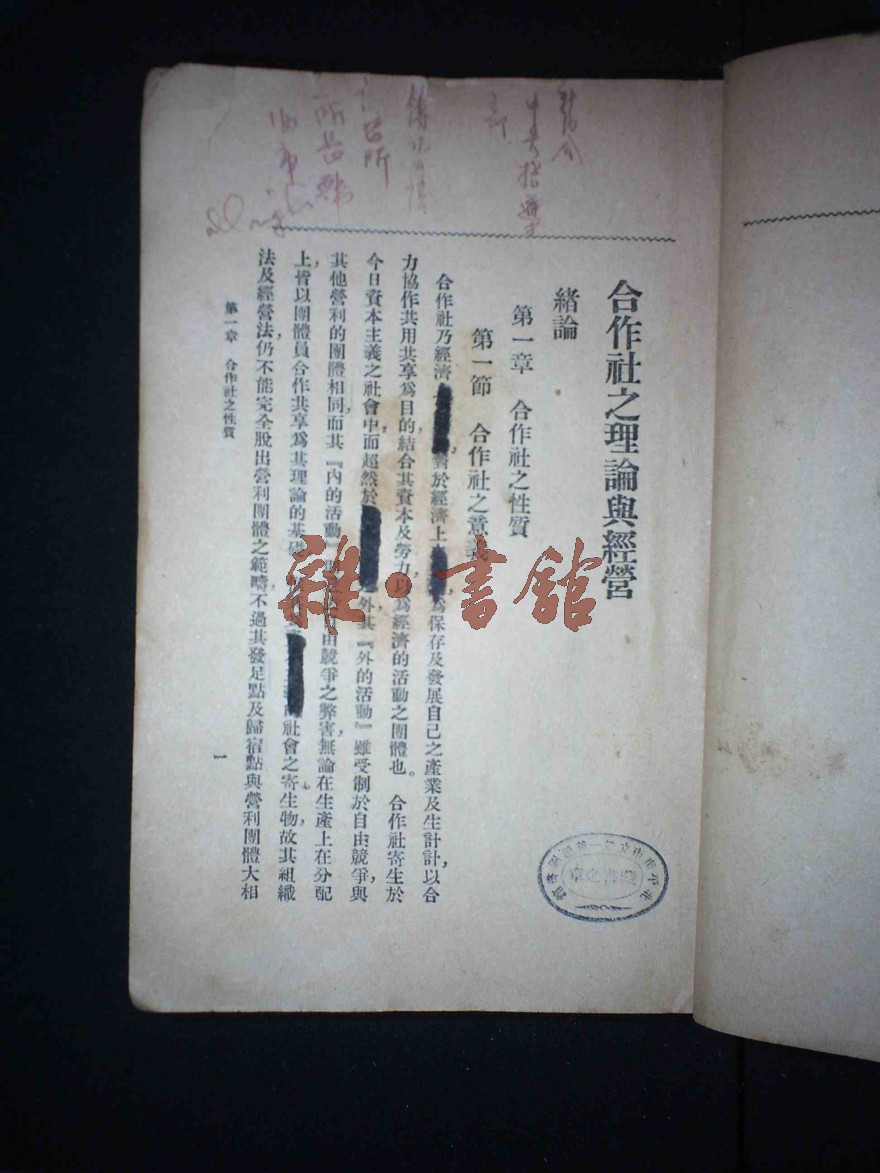 合作社之理論與經營
緒論
第一章 合作社之性質
第一節 合作社之意義
合作社乃經濟，對於經濟上為保存及發展自己之產業及生計計，以合
力協作共用共享為目的，結合其資本及勞力，以為經濟的活動之團體也。合作社寄生於
今日資本主義之社會中，而超然於外，其『外的活動』雖受制於自由競爭，與
其他營利的團體相同，而其『內的活動』由競爭之弊害，無論在生產上在分配
上，皆以團體員合作共享為其理論的基礎，社會之寄生物，故其組織
法及經營法，仍不能完全脫出營利團體之範疇，不過其發足點及歸宿點，與營利團體大相
第一章 合作社之性質
一
雜·書館
中央指導
藏書之章